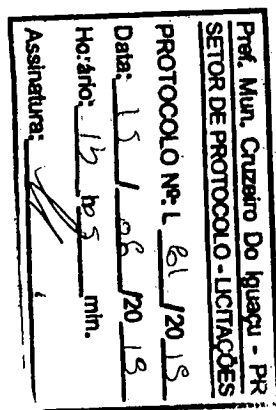 Pref. Mun. Cruzeiro Do Iguaçu - PR
SETOR DE PROTOCOLO - LICITAÇÕES
PROTOCOLO Nº: L /20
Data: 15 / 06 /20
Horário: hs min.
Assinatura: